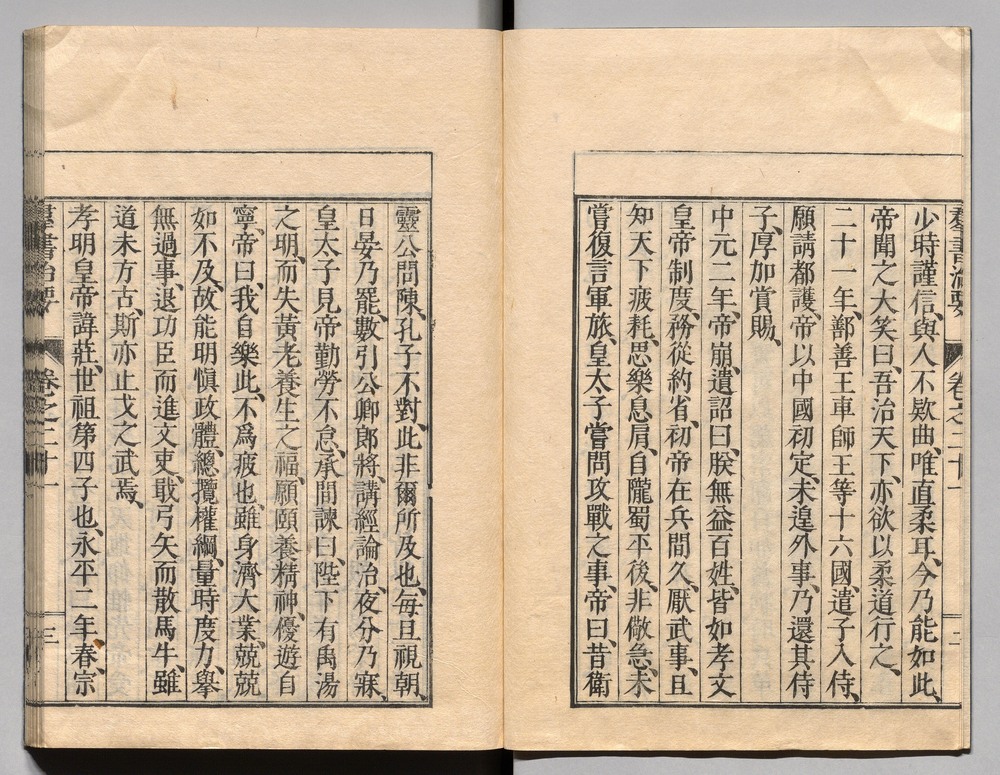 羣書治要 卷之二十一 二
少時謹信、與人不欵曲、唯直柔耳、今乃能如此、
帝聞之大笑曰、吾治天下、亦欲以柔道行之、
二十一年、鄯善王車師王等十六國、遣子入侍、
願請都護、帝以中國初定、未遑外事、乃還其侍
子、厚加賞賜、
中元二年、帝崩、遺詔曰、朕無益百姓、皆如孝文
皇帝制度、務從約省、初帝在兵間久、厭武事、且
知天下疲耗、思樂息肩、自隴蜀平後、非儆急、未
嘗復言軍旅、皇太子嘗問攻戰之事、帝曰、昔衛
靈公問陳、孔子不對、此非爾所及也、每旦視朝、
日晏乃罷、數引公卿郎將、講經論治、夜分乃寐、
皇太子見帝勤勞不怠、承間諫曰、陛下有禹湯
之明、而失黃老養生之福、願頤養精神、優遊自
寧、帝曰、我自樂此、不爲疲也、雖身濟大業、兢兢
如不及、故能明愼政體、總攬權綱、量時度力、舉
無過事、退功臣而進文吏、戢弓矢而散馬牛、雖
道未方古、斯亦止戈之武焉、
孝明皇帝諱莊、世祖第四子也、永平二年、春、宗
羣書治要 卷之二十一 三